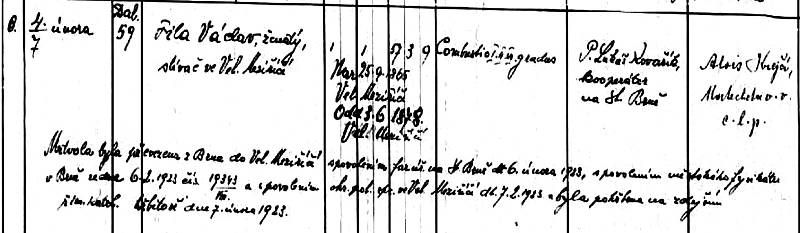 6. 4./7 února Dal. 59 Fila Václav, ženatý, 1 1 57 3 9 Combustio gradus P. Lukáš Kovařík, Alois Krejčí,
slévač ve Vel. Meziříčí Nar. 25.9.1865 kooperátor
Vel. Meziříčí na St. Brně c. l. p.
Odd. 3.6.1878.
Vel. Meziříčí
Mrtvola byla převezena z Brna do Vel. Meziříčí s povolením far. úř. na St. Brně dt. 6. února 1923, s povolením městského fysikátu
v Brně ze dne 6.2.1923 čís. 19343 a s povolením okr. pol. spr. ve Vel. Meziříčí dt. 7.2.1923 a byla pohřbena na zdejším
řím. katol. hřbitově dne 7. února 1923.